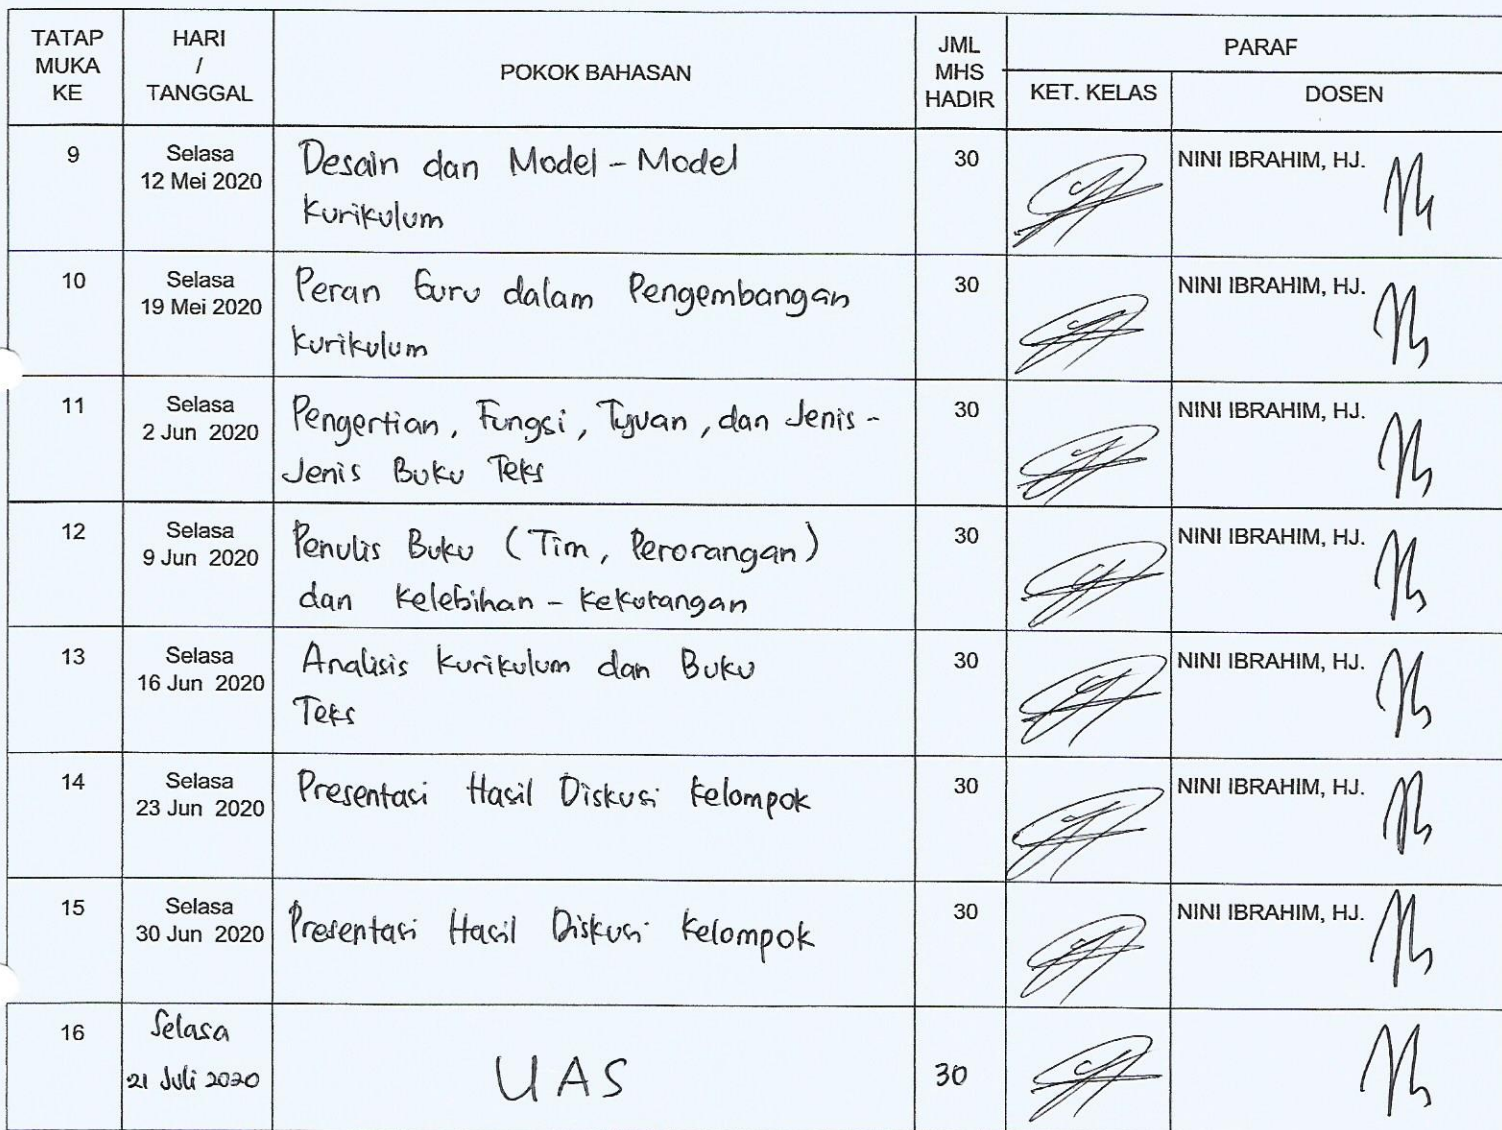 TATAP MUKA KE
HARI / TANGGAL
POKOK BAHASAN
JML MHS HADIR
PARAF
KET. KELAS
DOSEN
9
Selasa
12 Mei 2020
Desain dan Model - Model
Kurikulum
30
NINI IBRAHIM, HJ.
10
Selasa
19 Mei 2020
Peran Guru dalam Pengembangan
Kurikulum
30
NINI IBRAHIM, HJ.
11
Selasa
2 Jun 2020
Pengertian, Fungsi, Tujuan, dan Jenis -
Jenis Buku Teks
30
NINI IBRAHIM, HJ.
12
Selasa
9 Jun 2020
Penulis Buku (Tim, Perorangan)
dan Kelebihan - Kekurangan
30
NINI IBRAHIM, HJ.
13
Selasa
16 Jun 2020
Analisis Kurikulum dan Buku
Teks
30
NINI IBRAHIM, HJ.
14
Selasa
23 Jun 2020
Presentasi Hasil Diskusi Kelompok
30
NINI IBRAHIM, HJ.
15
Selasa
30 Jun 2020
Presentasi Hasil Diskusi Kelompok
30
NINI IBRAHIM, HJ.
16
Selasa
21 Juli 2020
UAS
30